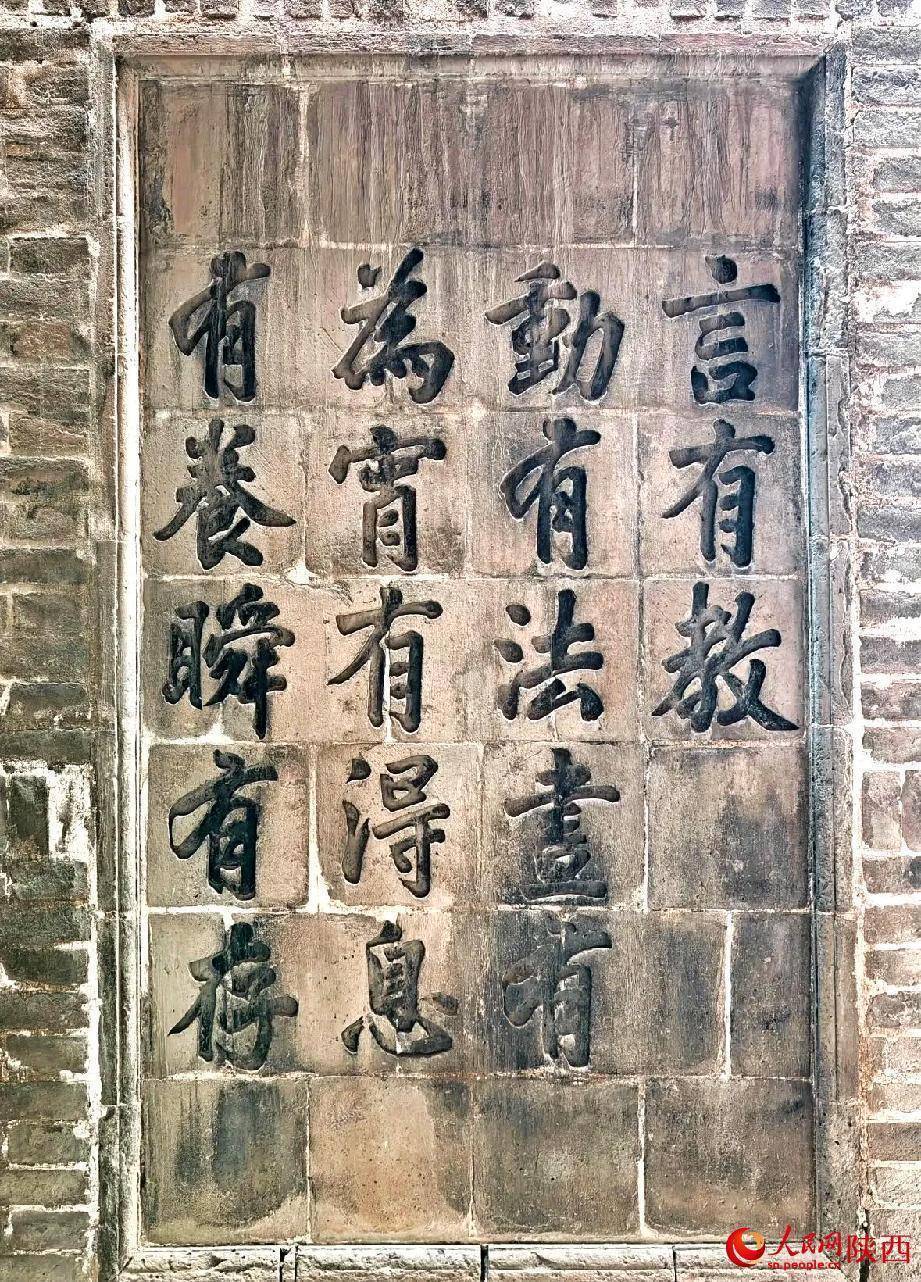 言有教
動有法晝有
為宵有得息
有養瞬有存
人民网 陕西
sn.people.cn